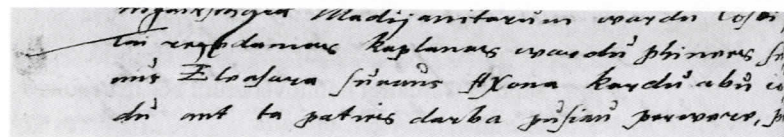 Madijanitarum wardu Cosbi,
tai regedamas kaplanas wardū phinees
nus Eleasara sunaus kardū abū
dū ant ta paties darba pusiaū perwere,